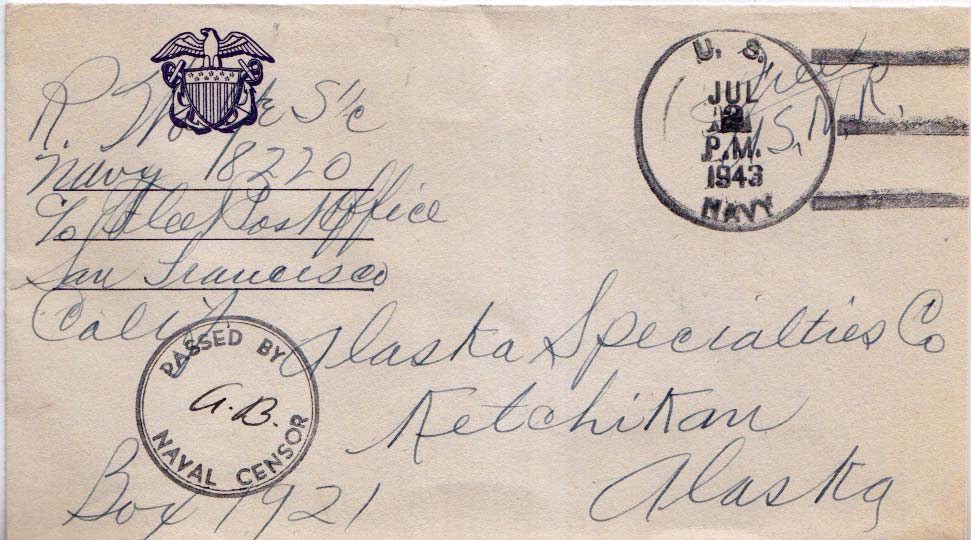 R. S 1/c
Navy 18220
c/o Fleet Post Office
San Francisco
Calif
U. S.
JUL
2
P.M.
1943
NAVY
Free
U.S.N.R.
PASSED BY
G.B.
NAVAL CENSOR
Alaska Specialties Co
Ketchikan
Alaska
Box 1921